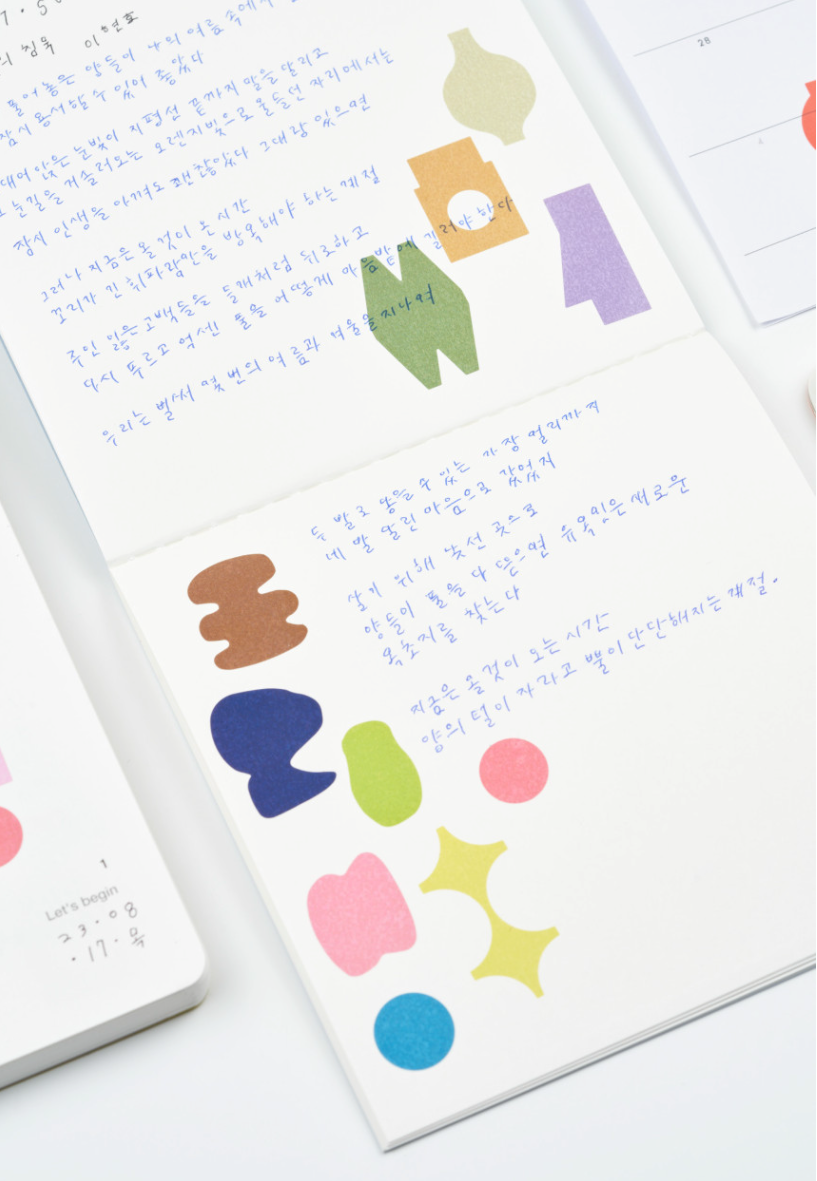 의 침묵 이현호
풀어놓은 양들이 나의 여름 속에서
잠시 용서할 수 있어 좋았다
대여 앉은 눈빛이 지평선 끝까지 말을 달리고
눈길을 거슬러오는 오렌지빛으로 물들던 자리에서는
잠시 인생을 아껴도 괜찮았다 그대랑 있으면
그러나 지금은 올 것이 온 시간
꼬리가 긴 휘파람만을 방목해야 하는 계절
주인 잃은 고백들을 들개처럼 뒤로하고
다시 푸르고 억센 풀을 어떻게 마음밭에 길러야 한다
우리는 벌써 몇 번의 여름과 겨울을 지나며
두 발로 닿을 수 있는 가장 멀리까지
네 발 달린 마음으로 갔었지
살기 위해 낯선 곳으로
양들이 풀을 다 뜯으면 유목민은 새로운
목초지를 찾는다
지금은 올 것이 오는 시간
양의 털이 자라고 뿔이 단단해지는 계절.
28
4
1
Let's begin
23.08
.17.목